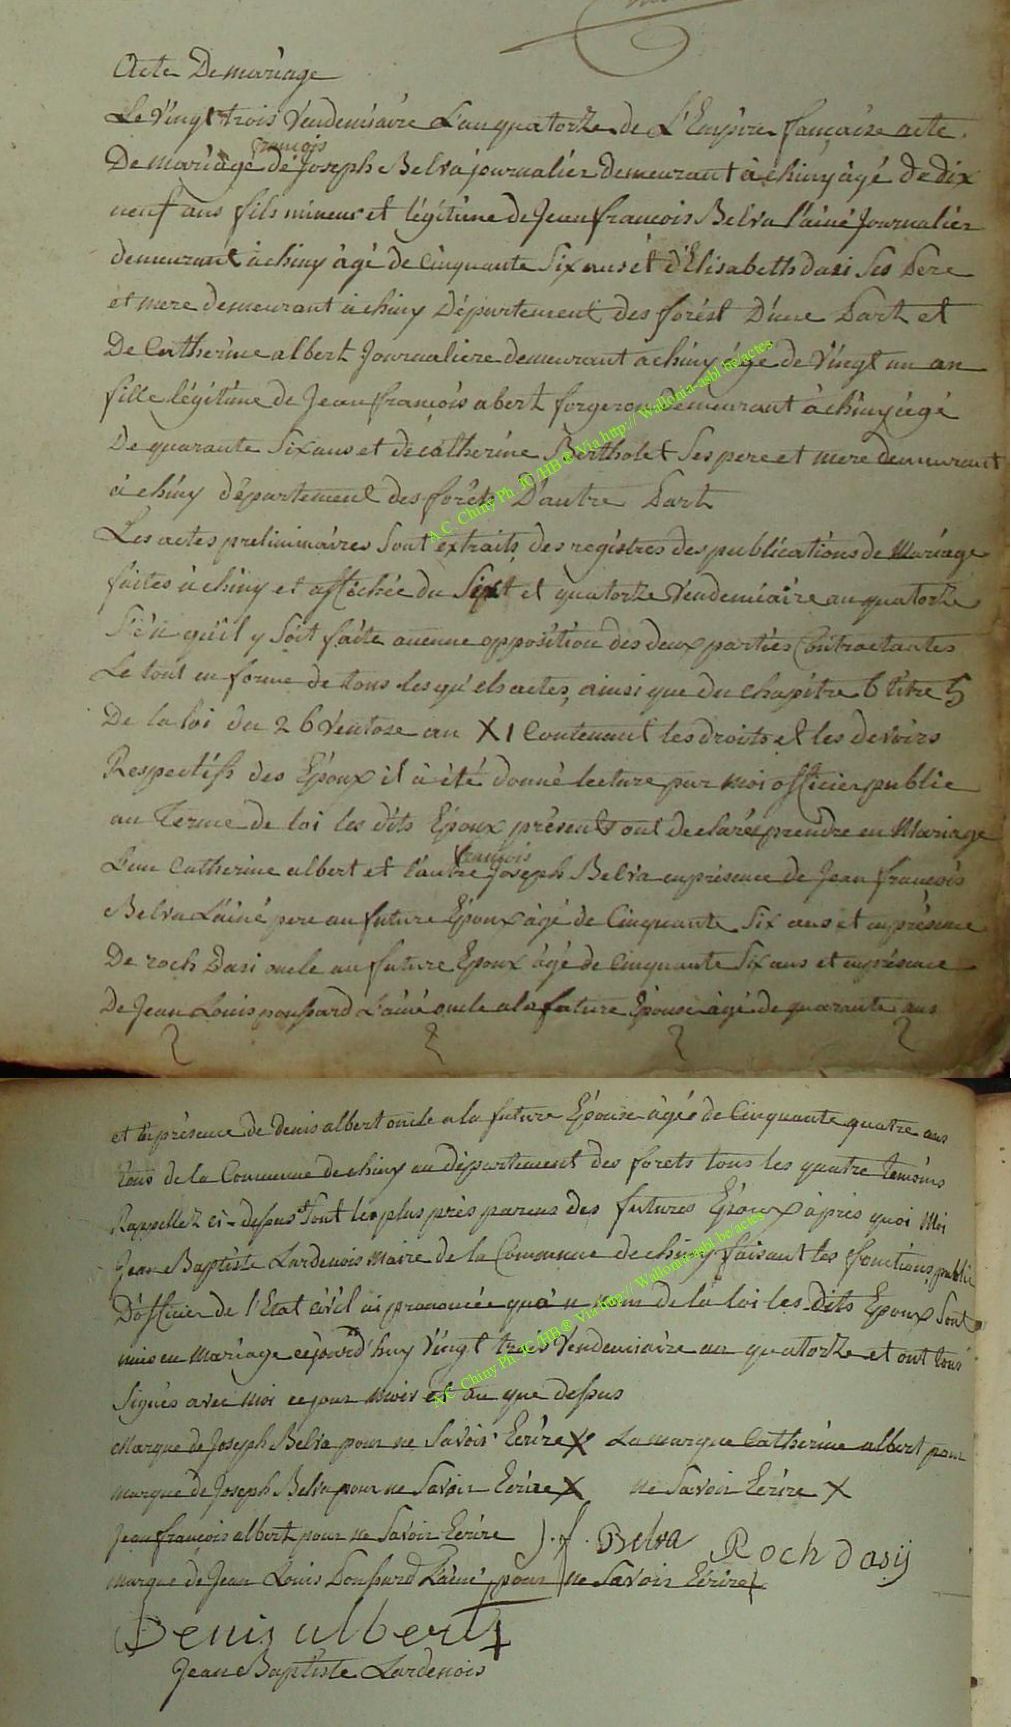 Acte De mariage
Le Vingt trois Vendemiaire L'an quatorze de L'Empire française acte
De mariage de françois Joseph Belva journalier demeurant à chiny âgé de dix
neuf ans fils mineur et légitime de Jean françois Belva l'ainé Journalier
demeurant à chiny âgé de Cinquante Six ans et d'Elisabeth dasi Ses Pere
et mere demeurant à chiny Département des forést D'une Part et
De Catherine albert Journaliere demeurant a chiny âge de Vingt un an
fille légitime de Jean françois abert forgeron Demeurant à chiny âgé
De quarante Six ans et de catherine Bertholet Ses pere et mere demeurant
à chiny département des foréts D'autre Part
Les actes preliminaires Sont extraits des registres des publications de Mariage
faites à chiny et affichée du Sept et quatorze Vendemiaire an quatorze
qu'il y Soit faite aucune opposition des deux parties Contractantes
Le tout en forme de tous les qu'els actes, ainsi que du chapitre 6 titre 5
De la loi du 26 Ventose an XI Contenant les droits et les devoirs
Respectifs des Epoux il à été donné lecture par moi officier public
au Terme de loi les dits Epoux présents ont declarés prendre en Mariage
L'un Catherine albert et l'autre françois Joseph Belva en présence de Jean françois
Belva L'ainé pere au future Epoux âgé de Cinquante Six ans et en présence
De roch Dasi oncle au future Epoux âgé de Cinquante Six ans et en présence
De Jean Louis poussard L'ainé oncle a la future Epouse âgé de quarante ans
et en présence de Denis albert oncle a la future Epouse âgée de Cinquante quatre ans
tous de la Commune de chiny au département des forets tous les quatre temoins
Rappellez ci-dessus Sont les plus près parens des futures Epoux après quoi Moi
Jean Baptiste Lardenois Maire de la Commune de chiny faisant les fonctions public
D'officier de l'Etat civil ai prononcée qu'à nom de la loi les Dits Epoux Sont
mis en Mariage cejourd'huy Vingt trois Vendemiaire an quatorze et ont tous
Signés avec Moi ce jour Mois et an que dessus
Marque de Joseph Belva pour ne Savoir Ecrire X La marque Catherine albert pour
marque de Joseph Belva pour ne Savoir Ecrire X ne Savoir Ecrire X
Jean françois albert pour ne Savoir Ecrire J. f. Belva Roch dasij
marque de Jean Louis Poussard L'ainé pour ne Savoir Ecrire
Denis albert
Jean Baptiste Lardenois
A.C. Chiny Ph. JC /HB ® Via http:// Wallonia-asbl.be/actes
A.C. Chiny Ph. JC /HB ® Via http:// Wallonia-asbl.be/actes